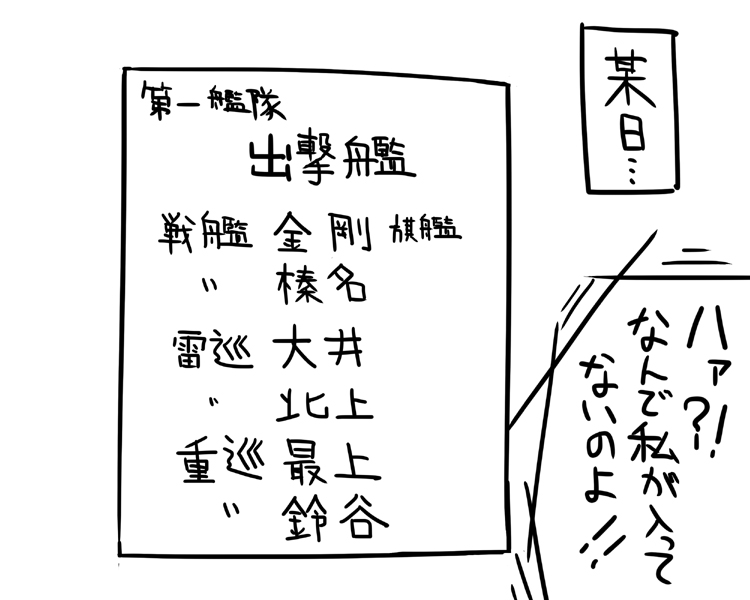 某日…
第一艦隊
出撃艦
戦艦 金剛 旗艦
〃 榛名
雷巡 大井
〃 北上
重巡 最上
〃 鈴谷
ハァ?!
なんで私が入って
ないのよ!!